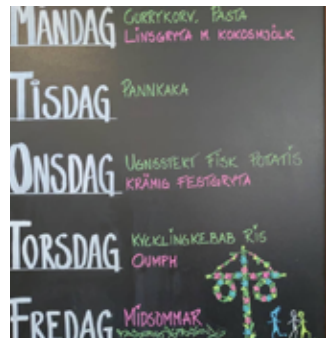 MÅNDAG CURRYKORV, PASTA
LINSGRYTA M KOKOSMJÖLK
TISDAG PANNKAKA
ONSDAG UGNSSTEKT FISK POTATIS
KRÄMIG FESTGRYTA
TORSDAG KYCKLINGKEBAB RIS
OUMPH
FREDAG MIDSOMMAR